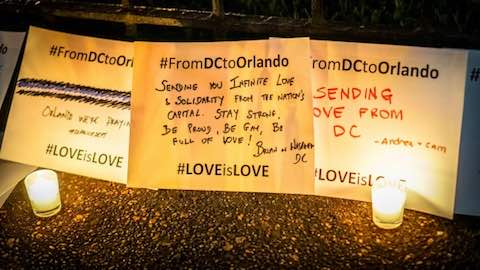 #FromDCtoOrlando
ORLANDO WE'RE PRAYING
#LOVEisLOVE
#FromDCtoOrlando
SENDING YOU INFINITE LOVE
& SOLIDARITY FROM THE NATION'S
CAPITAL. STAY STRONG,
BE PROUD, BE GAY, BE
FULL OF LOVE!
BRIAN IN
DC
#LOVEisLOVE
#FromDCtoOrlando
SENDING
OVE FROM
DC
- Andrea + Cam
#LOVEisLOVE
#
#